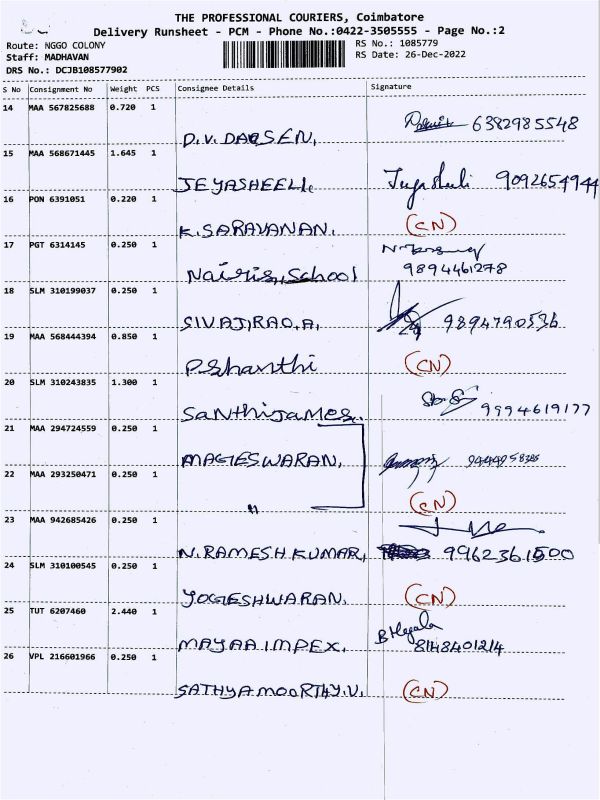 THE PROFESSIONAL COURIERS, Coimbatore
Delivery Runsheet - PCM - Phone No.:0422-3505555 - Page No.:2
Route: NGGO COLONY
Staff: MADHAVAN
DRS No.: DCJB108577902
RS No.: 1085779
RS Date: 26-Dec-2022
S No Consignment No Weight PCS Consignee Details Signature
14 MAA 567825688 0.720 1
6382985548
D.V. DAOSEN,
15 MAA 568671445 1.645 1
JEYASHEELI, 9092654944
16 PON 6391051 0.220 1
K.SARAVANAN. (CN)
17 PGT 6314145 0.250 1
Nairis, School 9894461278
18 SLM 310199037 0.250 1
SIVAJIRAO.A, 9894790536
19 MAA 568444394 0.850 1
P.Shanthi (CN)
20 SLM 310243835 1.300 1
Santhijames. 9994619177
21 MAA 294724559 0.250 1
MAGESWARAN,
22 MAA 293250471 0.250 1
" (CN)
23 MAA 942685426 0.250 1
N.RAMESH KUMAR, 9962361500
24 SLM 310100545 0.250 1
YOGESHWARAN. (CN)
25 TUT 6207460 2.440 1
MAYAA IMPEX. 8148401214
26 VPL 216601966 0.250 1
SATHYAMOORTHY.V. (CN)